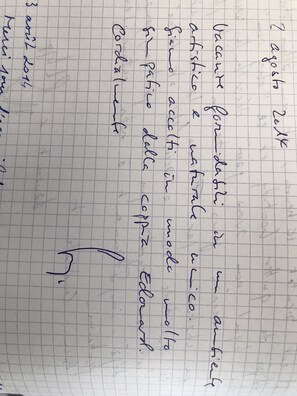 2 agosto 2014
Vacanze formidabili in un ambiente
artistico e naturale unico.
Siamo accolti in modo molto
simpatico dalla coppia Edouard.
Cordialmente
3 août 2014
Merci pour